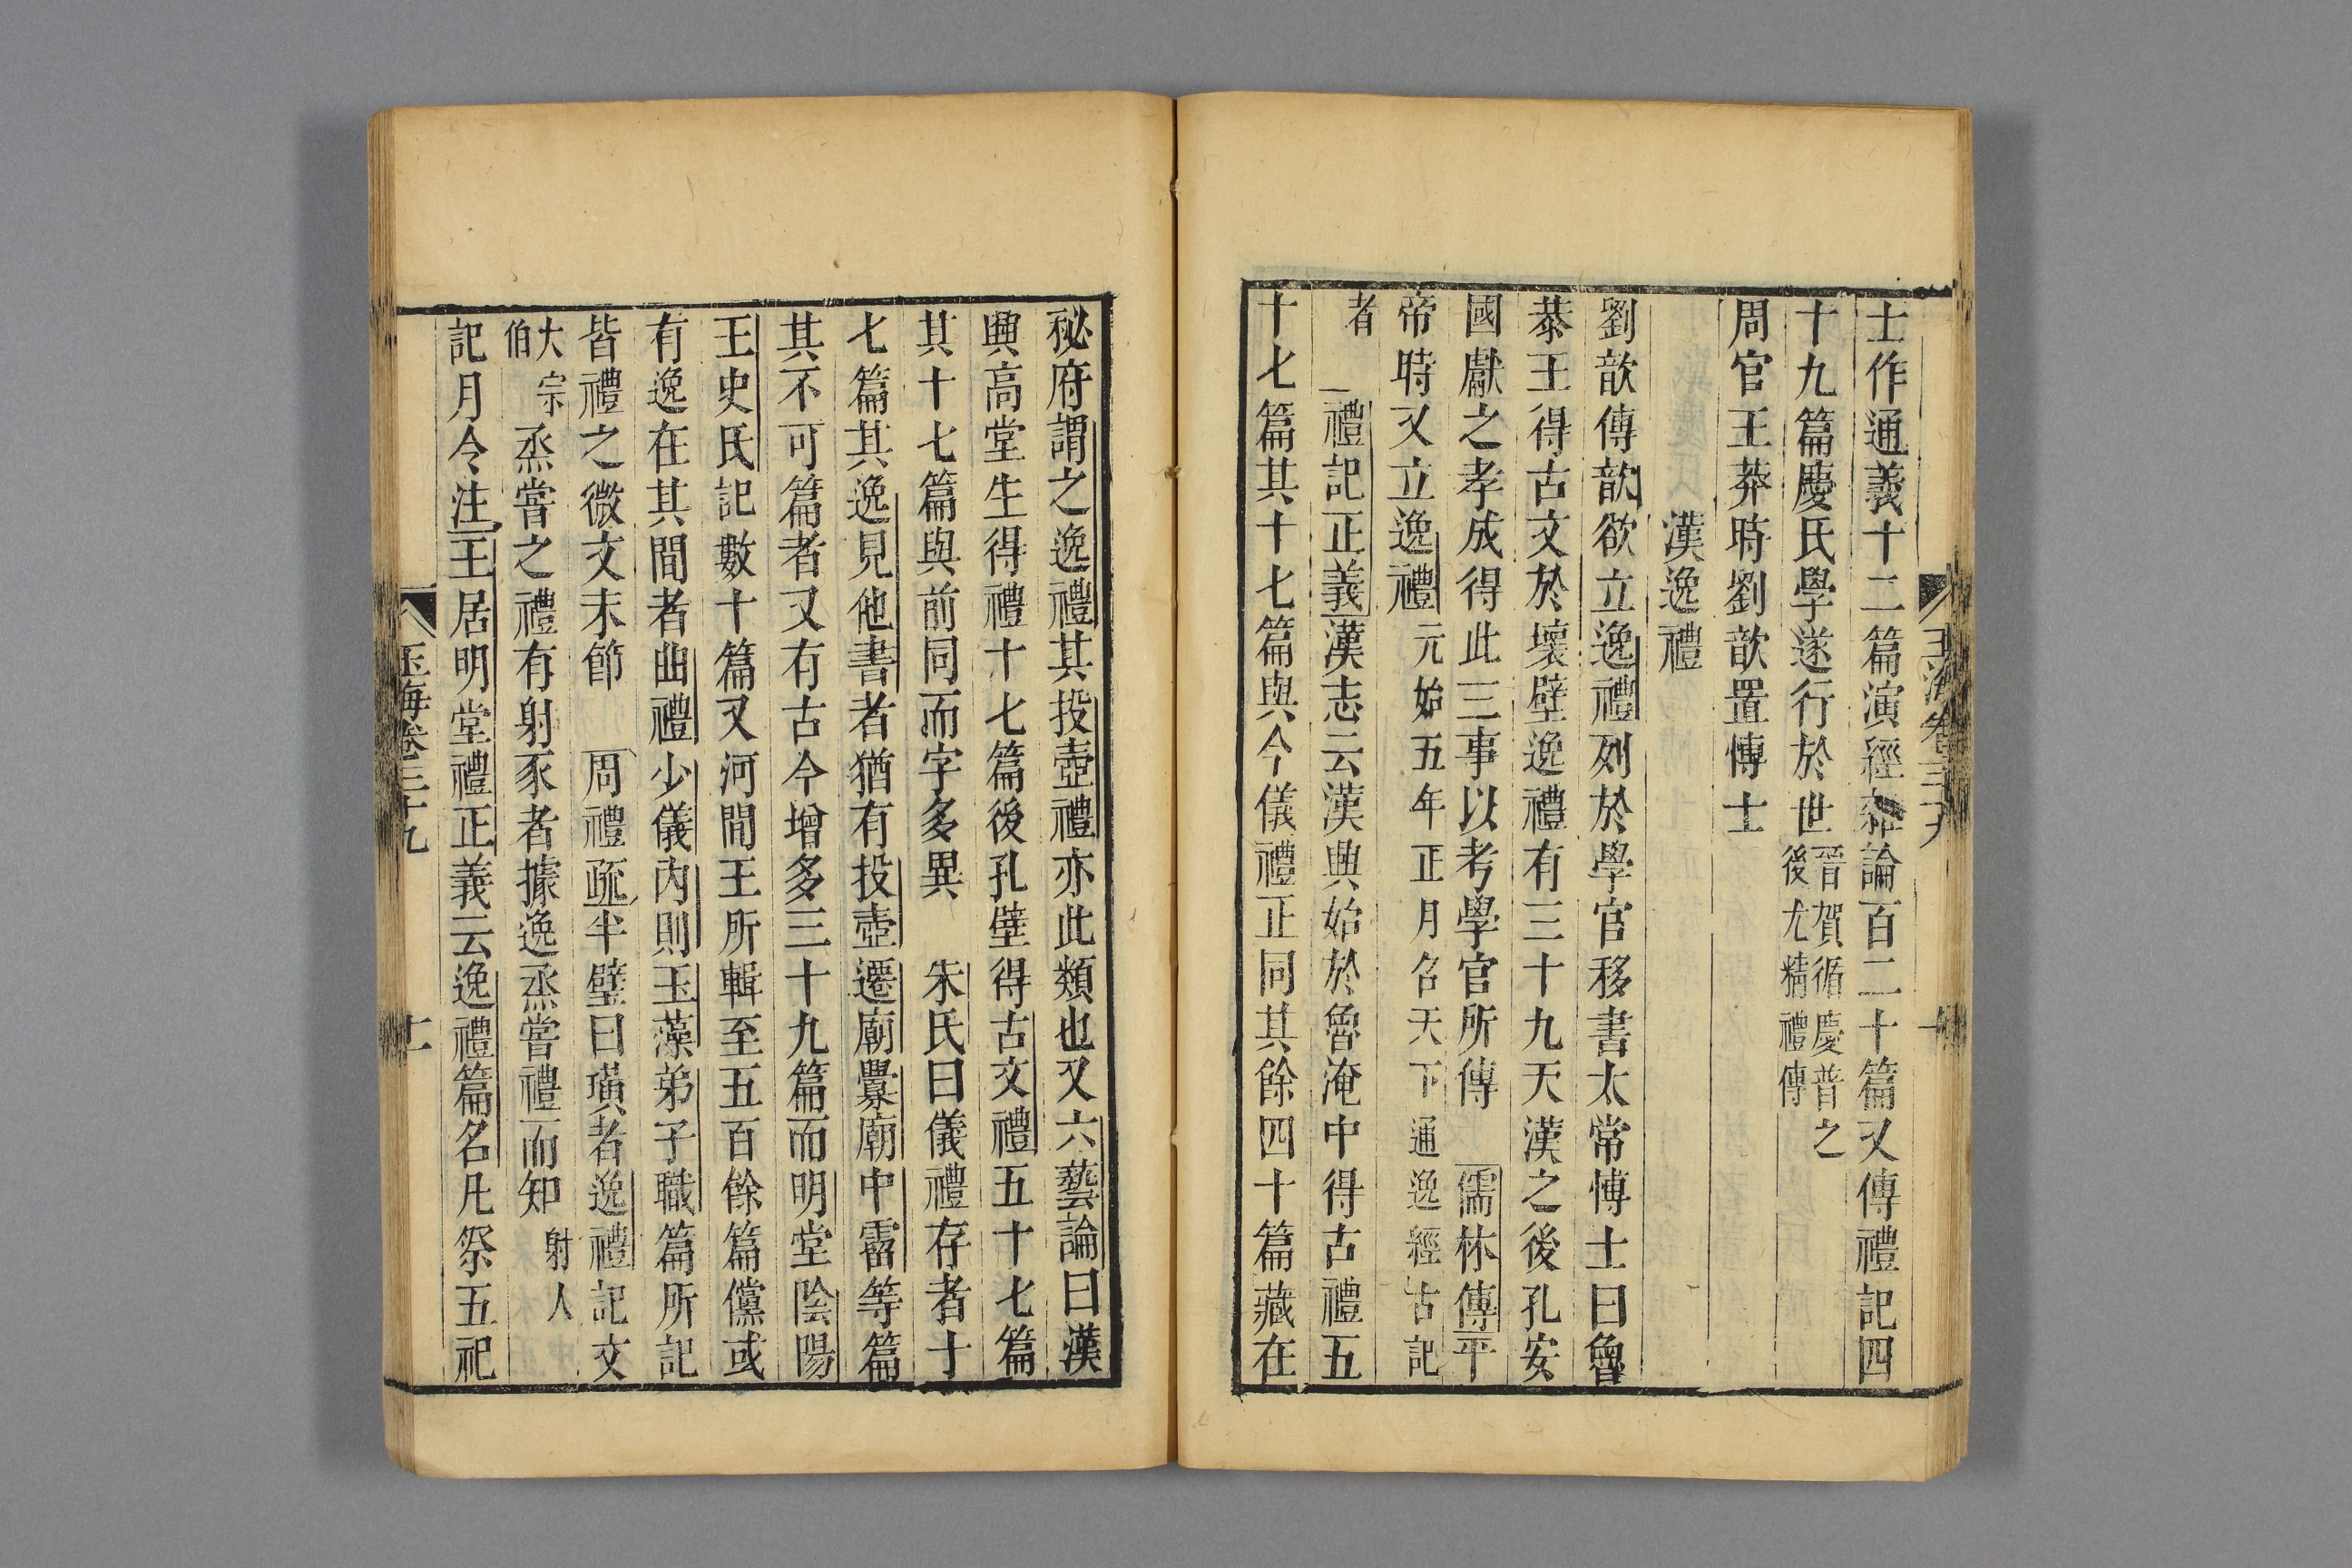 士作通義十二篇演經雜論百二十篇又傳禮記四
十九篇慶氏學遂行於世晉賀循慶普之後尤精禮傳
周官王莽時劉歆置博士
漢逸禮
劉歆傳歆欲立逸禮列於學官移書太常博士曰魯
恭王得古文於壞壁逸禮有三十九天漢之後孔安
國獻之孝成得此三事以考學官所傳 儒林傳平
帝時又立逸禮元始五年正月召天下通逸經古記
者 禮記正義漢志云漢興始於魯淹中得古禮五
十七篇其十七篇與今儀禮正同其餘四十篇藏在
秘府謂之逸禮其投壺禮亦此類也又六藝論曰漢
興高堂生得禮十七篇後孔壁得古文禮五十七篇
其十七篇與前同而字多異 朱氏曰儀禮存者十
七篇其逸見他書者猶有投壺遷廟釁廟中霤等篇
其不可篇者又有古今增多三十九篇而明堂陰陽
王史氏記數十篇又河間王所輯至五百餘篇儻或
有逸在其間者曲禮少儀內則玉藻弟子職篇所記
皆禮之微文末節 周禮疏半璧曰璜者逸禮記文
大宗伯 烝嘗之禮有射豕者據逸烝嘗禮而知射人
記月令注王居明堂禮正義云逸禮篇名凡祭五祀
玉海卷三十九
十一